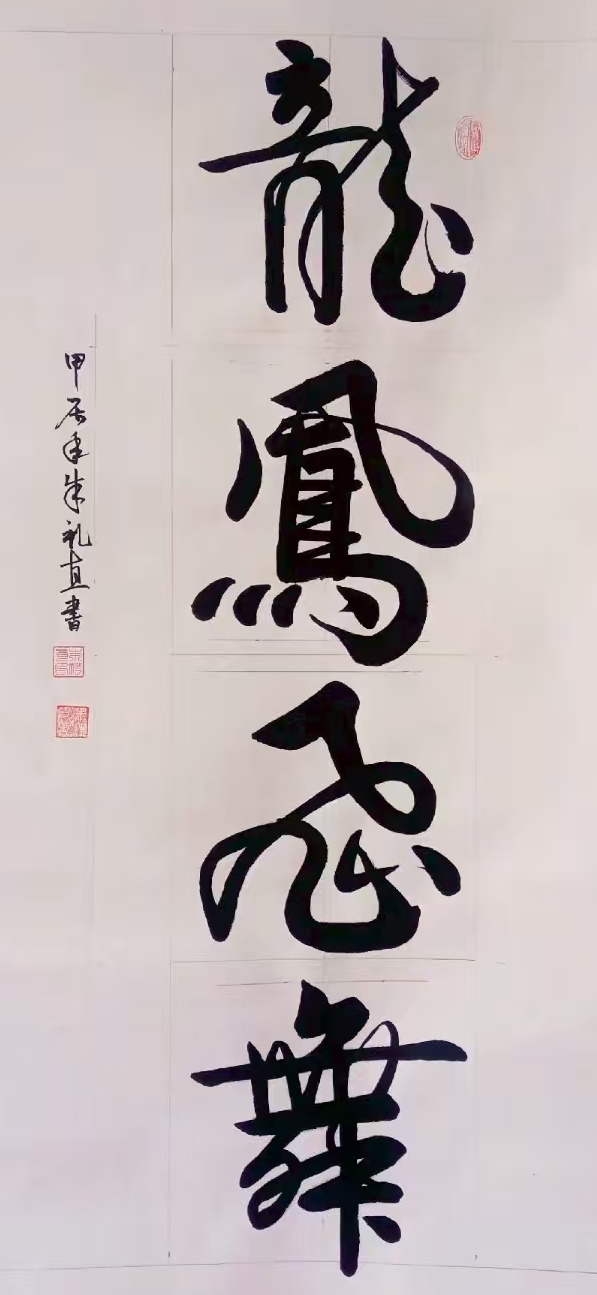 龍鳳飛舞
甲辰年朱礼直書